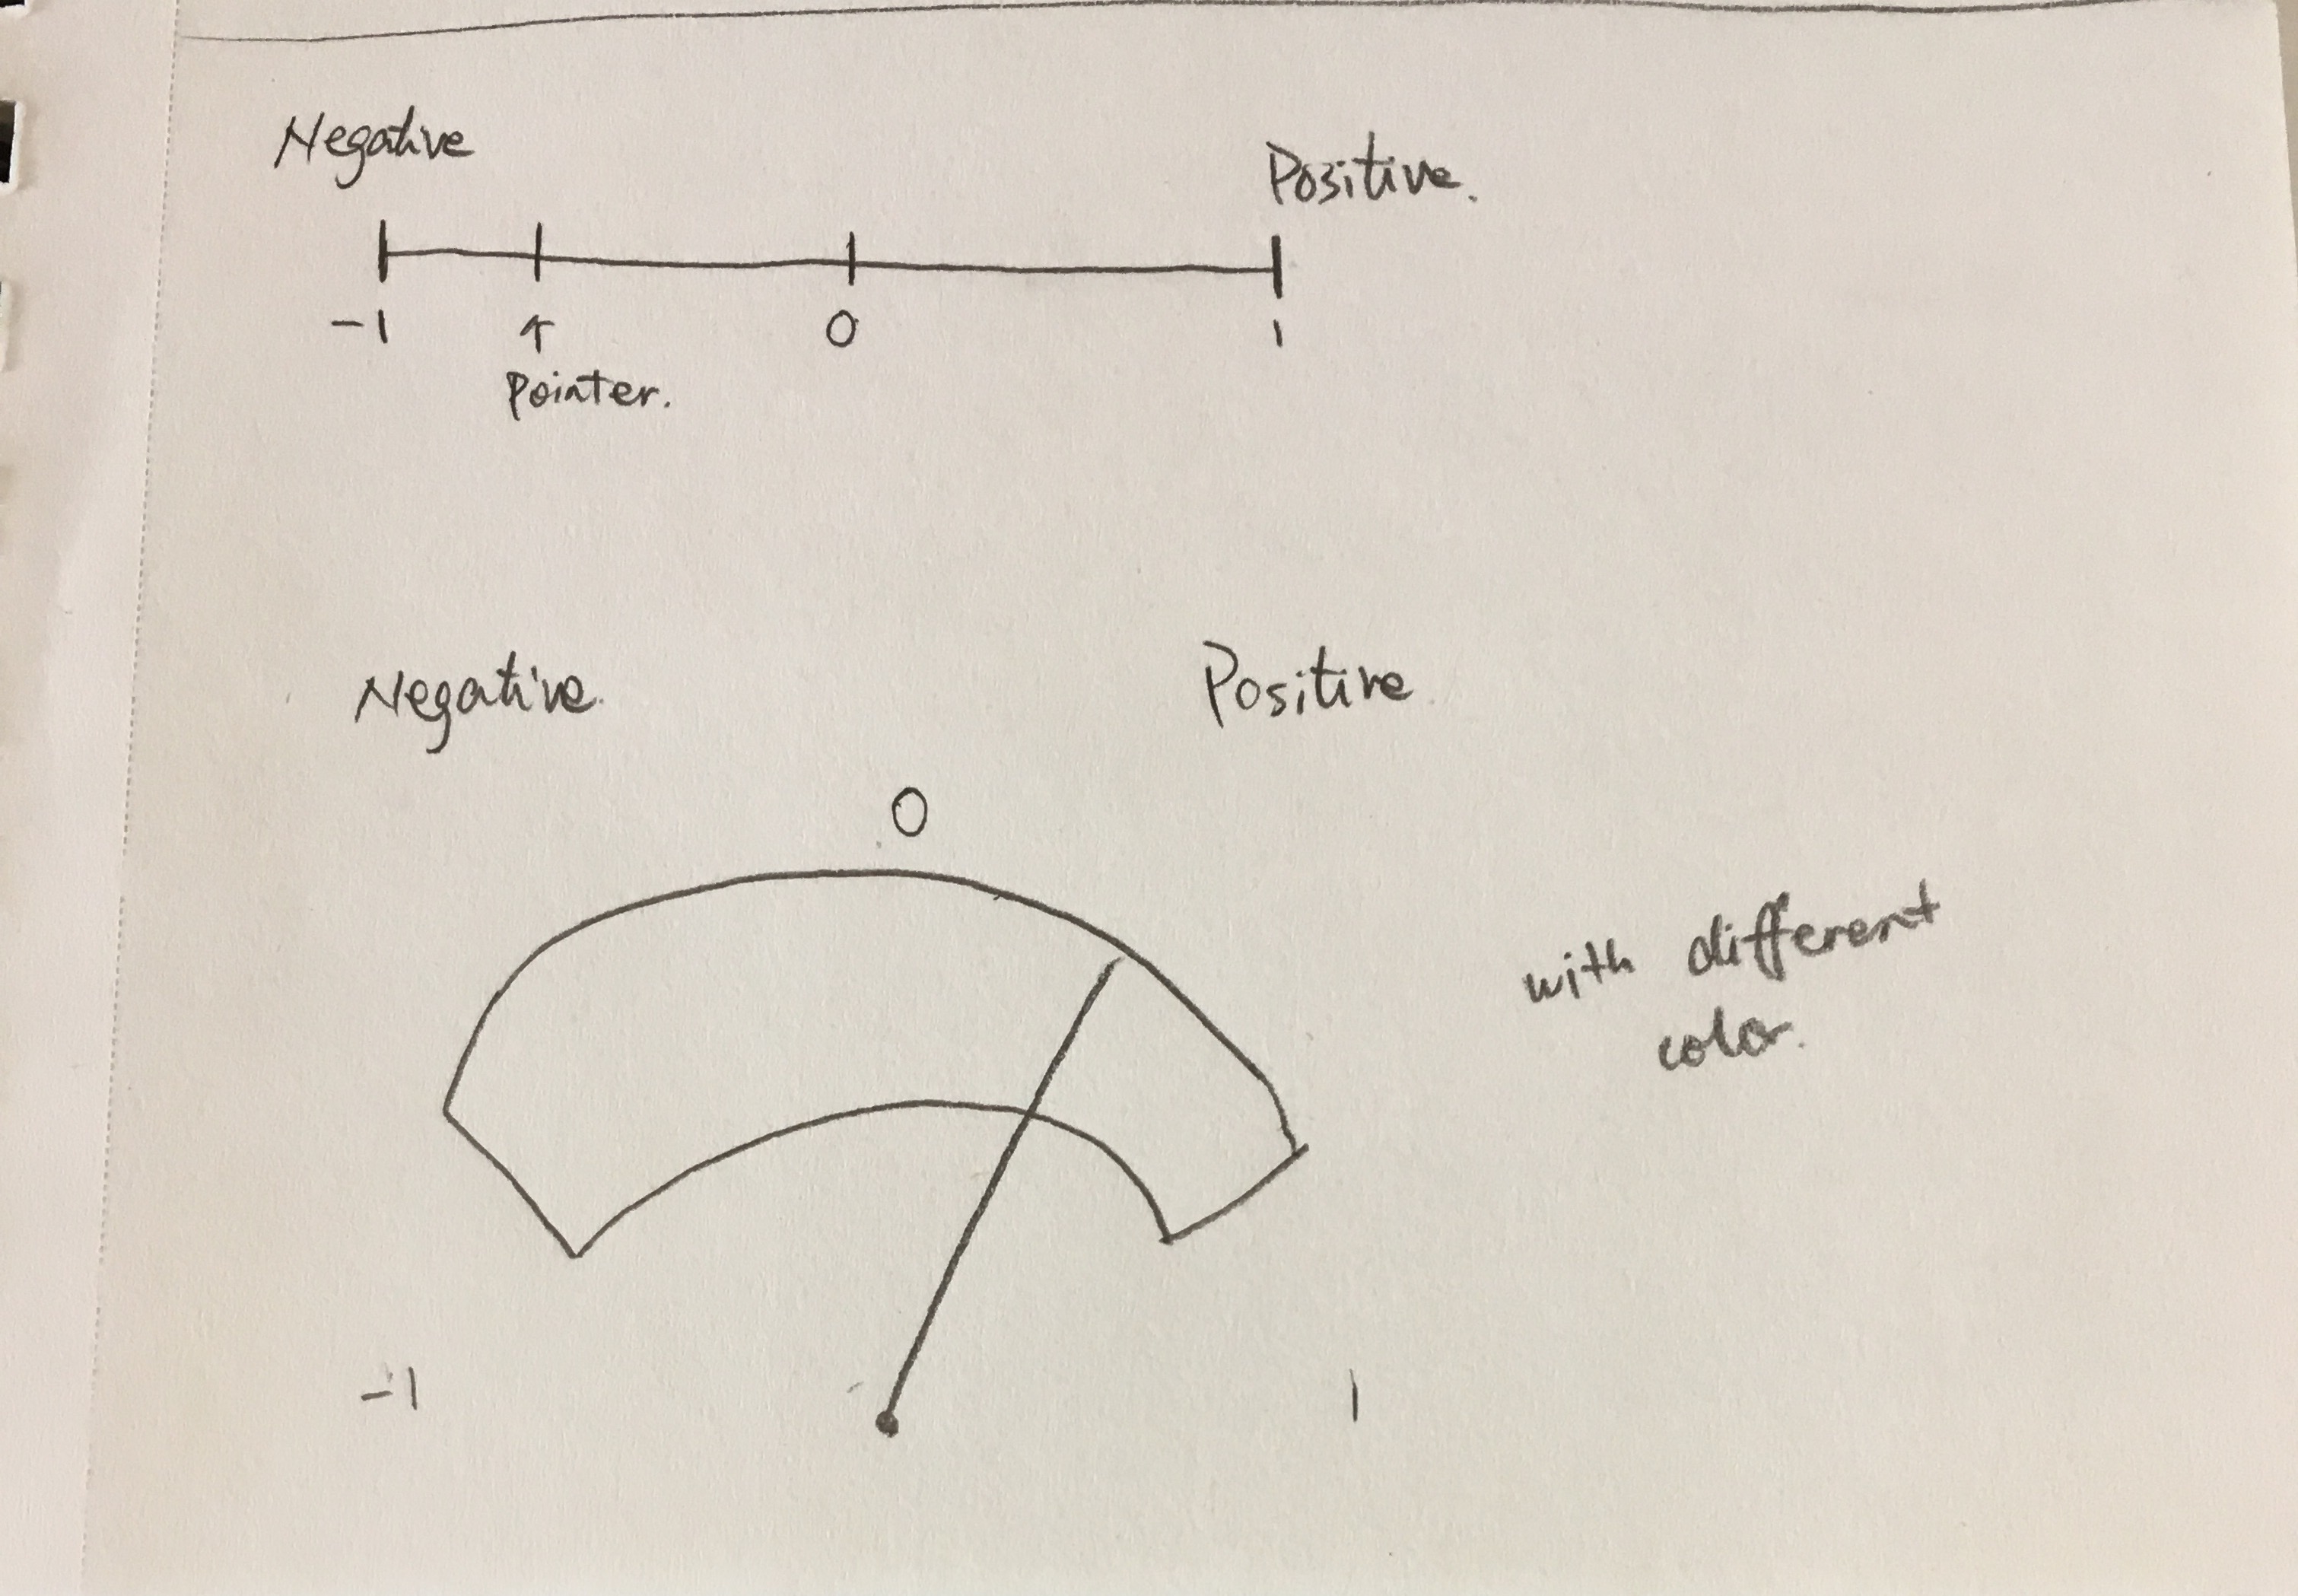 Negative
Positive.
-1 ↑ 0 1
Pointer.
Negative.
Positive
0
with different
color.
-1 1